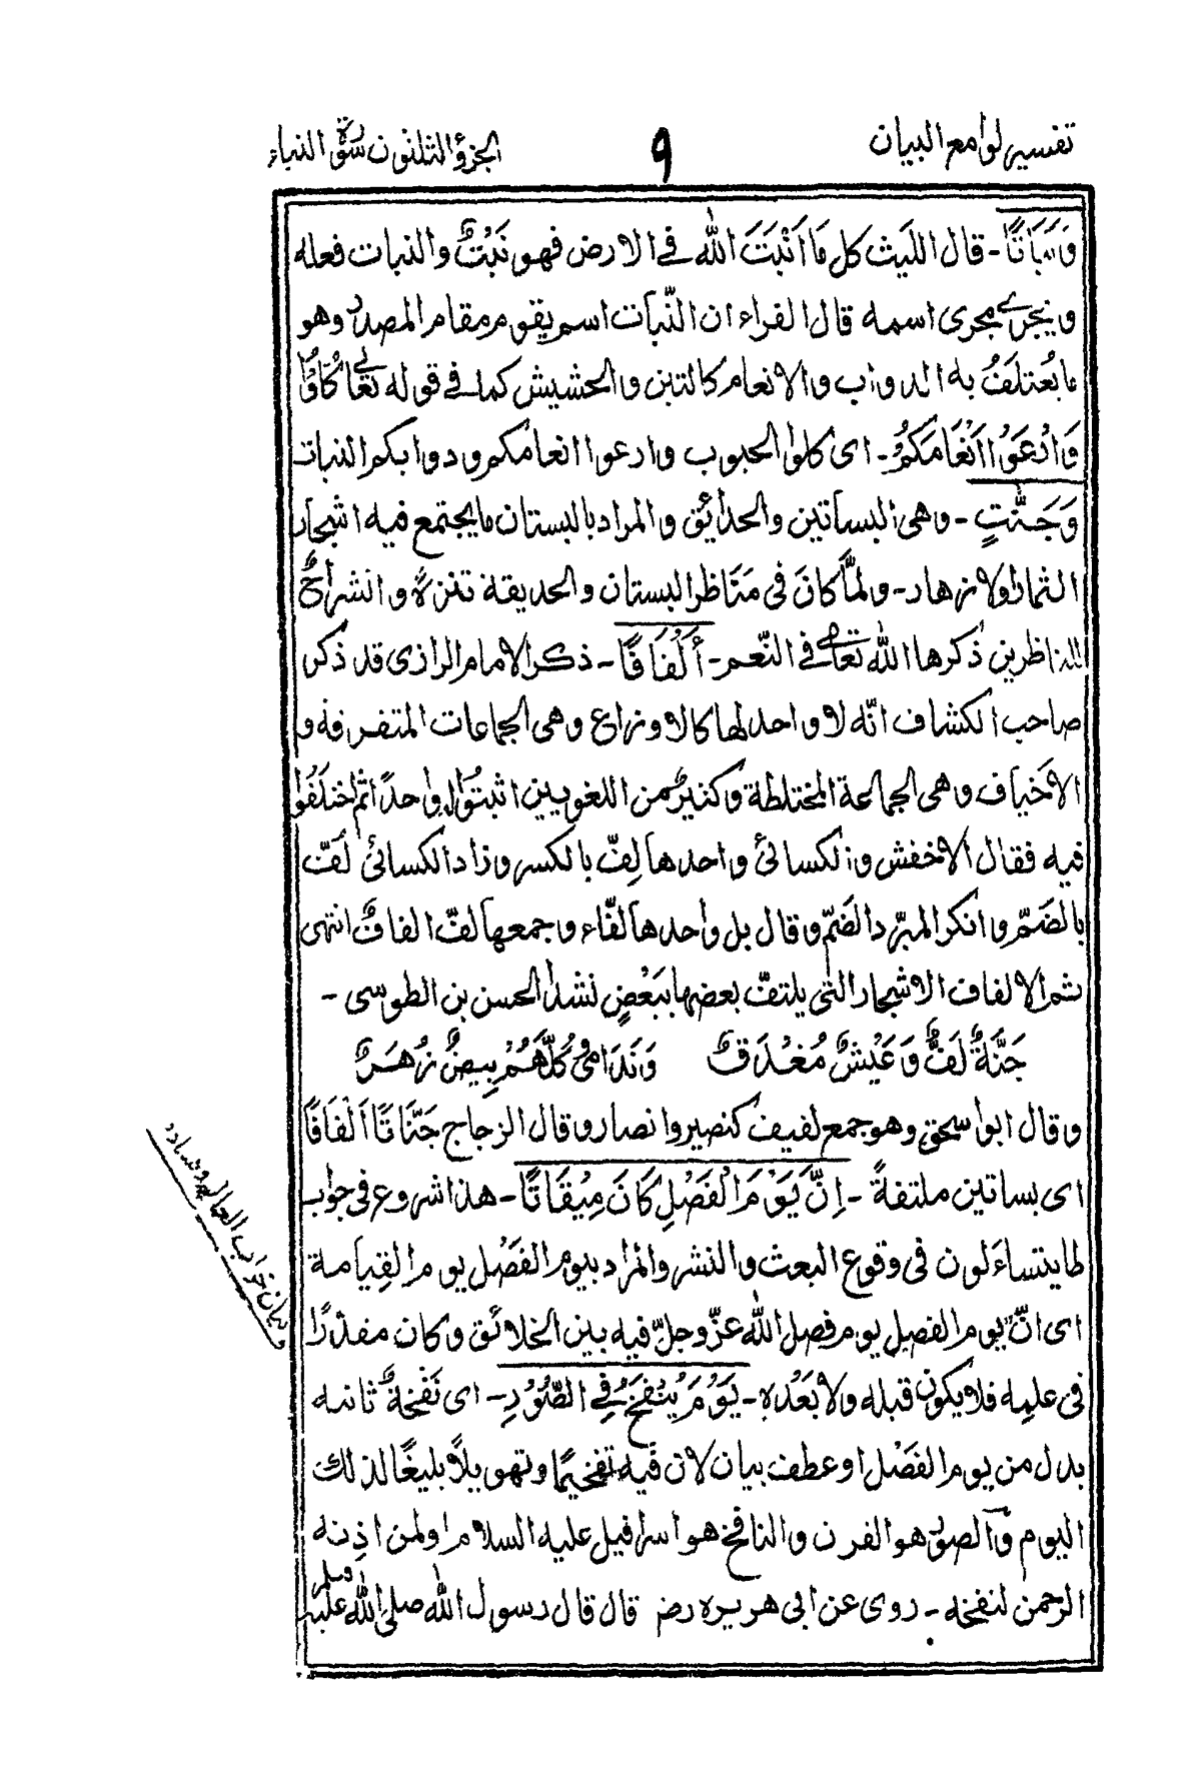 تفسير لوامع البيان
۹
الجزؤ الثلثون سورة النباء
وَّنَبَاتًا - قال الليث كل مَا اَنْبَتَ الله فے الارض فهو نَبْتٌ والنبات فعله
ويجرے مجرى اسمه قال الفراء ان النّبات اسم يقوم مقام المصدر وهو
ما يُعتلَفُ به الدواب والانعام كالتبن والحشيش كما فے قوله تعالى كُلُوْا
وَارْعَوْا اَنْعَامَكُمْ - اى كلوا الحبوب وارعوا انعامكم ودوابكم النبات
وَجَنّٰتٍ - وهى البساتين والحدائق والمراد بالبستان ما يجتمع فيه اشجار
الثمار والازهار - ولمّا كانَ فى مَنَاظر البستان والحديقة تنزهٌ وانشراحٌ
للناظرين ذكرها الله تعالى فے النّعم - أَلْفَافًا - ذكر الامام الرازى قد ذكر
صاحب الكشاف انّه لا واحد لها كالاوزاع وهى الجماعات المتفرقة و
الاَخياف وهى الجماعة المختلطة وكثيرٌ من اللغويين اثبتوا لها واحدًا ثم اختلَفُوا
فيه فقال الاخفش والكسائى واحدها لِفّ بالكسر وزاد الكسائى لُفّ
بالضَمّ وانكر المبرّد الضّمّ وقال بل واحدها لفّاء وجمعها لفّ الفافٌ انتهى
ثم الالفاف الاشجار التى يلتفّ بعضها ببَعْضٍ نشد الحسن بن الطوسى -
جَنَّةٌ لَفٌّ وَعَيْشٌ مُغْدَقٌ وَنَدَامٰى كُلُّهُمْ بِيضٌ زُهَرٌ
وقال ابو اسحق وهو جمع لفيف كنصير وانصار وقال الزجاج جَنَّاتًا اَلْفَافًا
اى بساتين ملتفةً - اِنَّ يَوْمَ الْفَصْلِ كَانَ مِيْقَاتًا - هذا شروع فى جواب
ما يتساءَلون فى وقوع البعث والنشر والمراد بيوم الفَصْل يوم القيامة
اى انّ يوم الفصل يوم فصل الله عزّ وجلّ فيه بين الخلائق وكان مقدّرًا
فى علمه فلا يكون قبله ولا بَعْدَه - يَوْمَ يُنْفَخُ فِے الصُّوْرِ - اى نَفْخةٌ ثانيه
بدل من يوم الفَصْل او عطف بيان لان فيه تفخيمًا وتهويلًا بليغًا لذلك
اليوم والصور هو القرن والنافخ هو اسرافيل عليه السلام اولمن اذنه
الرحمن لنفخه - روى عن ابى هريره رض قال قال رسول الله صلى الله عليه وسلم